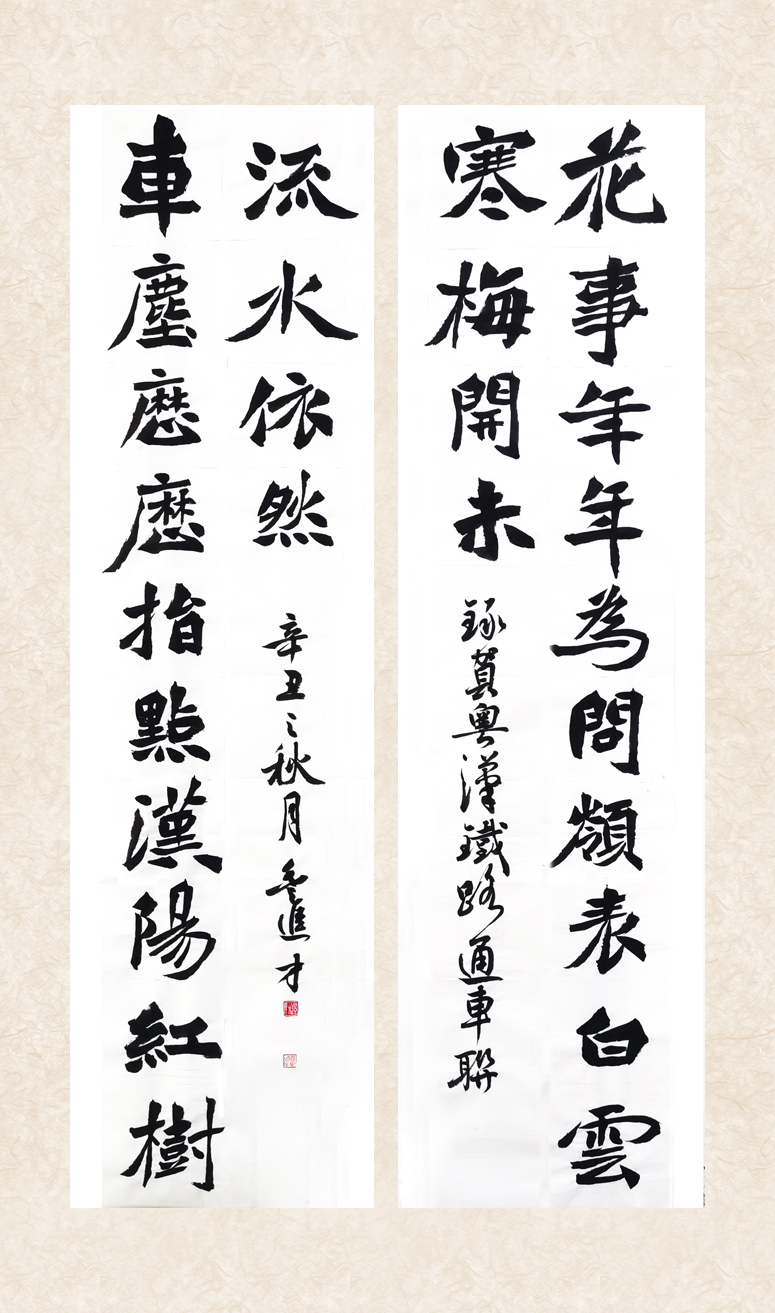 花事年年為問嶺表白雲
寒梅開未
錄粵漢鐵路通車聯
車塵歷歷指點漢陽紅樹
流水依然
辛丑之秋月進才